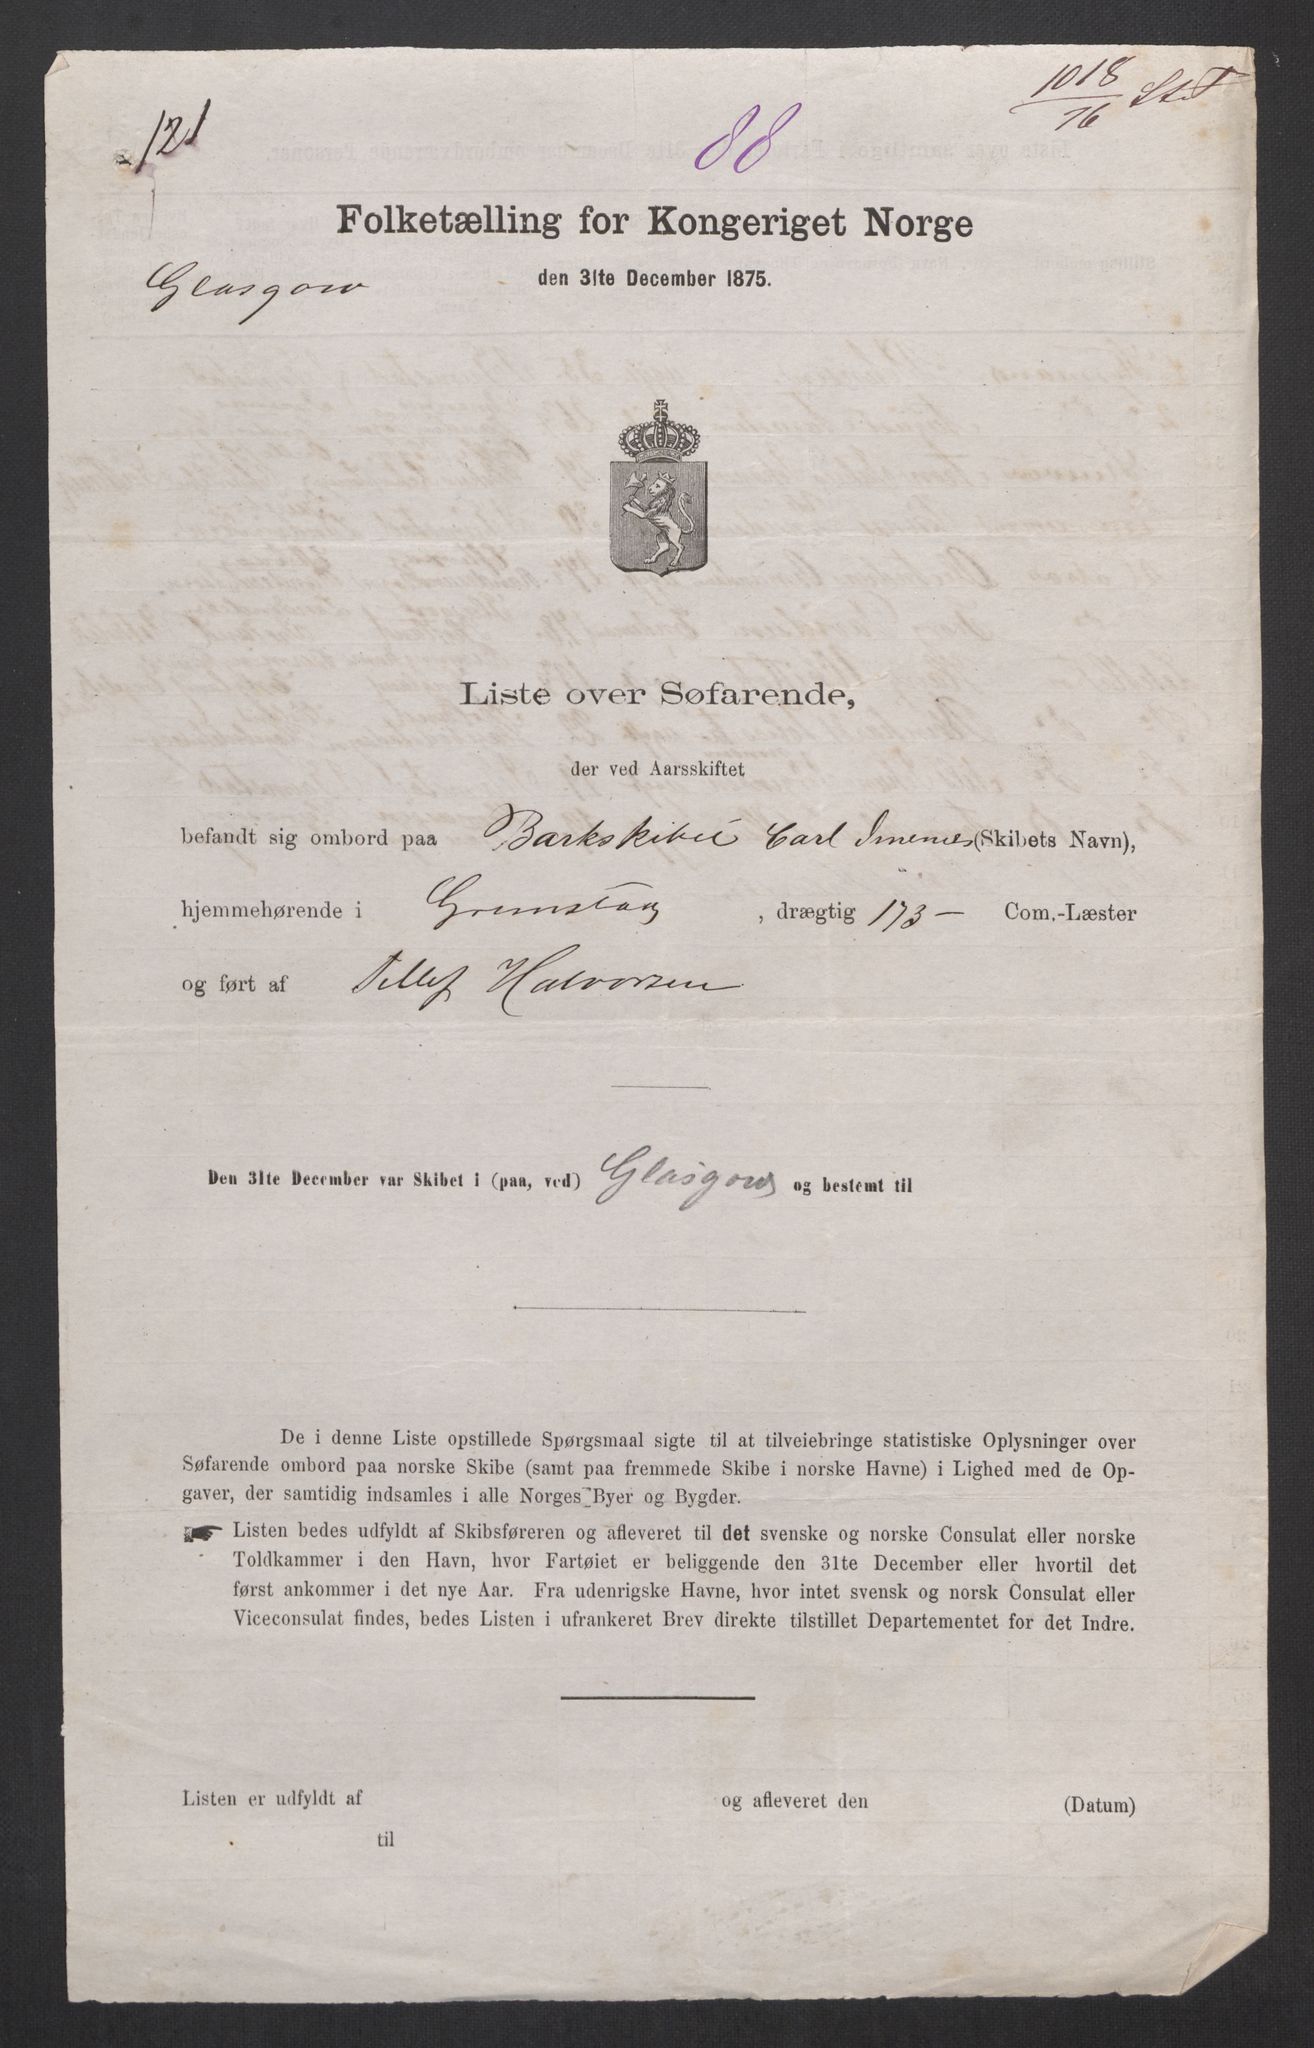 121
88
1018
76
Folketælling for Kongeriget Norge
Glasgow
den 31te December 1875.
Liste over Søfarende,
der ved Aarsskiftet
befandt sig ombord paa Carl (Skibets Navn),
hjemmehørende i Grimstad, drægtig 173 — Com.-Læster
og ført af Tellef Halvorsen
Den 31te December var Skibet i (paa, ved) Glasgow og bestemt til
De i denne Liste opstillede Spørgsmaal sigte til at tilveiebringe statistiske Oplysninger over
Søfarende ombord paa norske Skibe (samt paa fremmede Skibe i norske Havne) i Lighed med de Op-
gaver, der samtidig indsamles i alle Norges Byer og Bygder.
Listen bedes udfyldt af Skibsføreren og afleveret til det svenske og norske Consulat eller norske
Toldkammer i den Havn, hvor Fartøiet er beliggende den 31te December eller hvortil det
først ankommer i det nye Aar. Fra udenrigske Havne, hvor intet svensk og norsk Consulat eller
Viceconsulat findes, bedes Listen i ufrankeret Brev direkte tilstillet Departementet for det Indre.
Listen er udfyldt af og afleveret den (Datum)
til